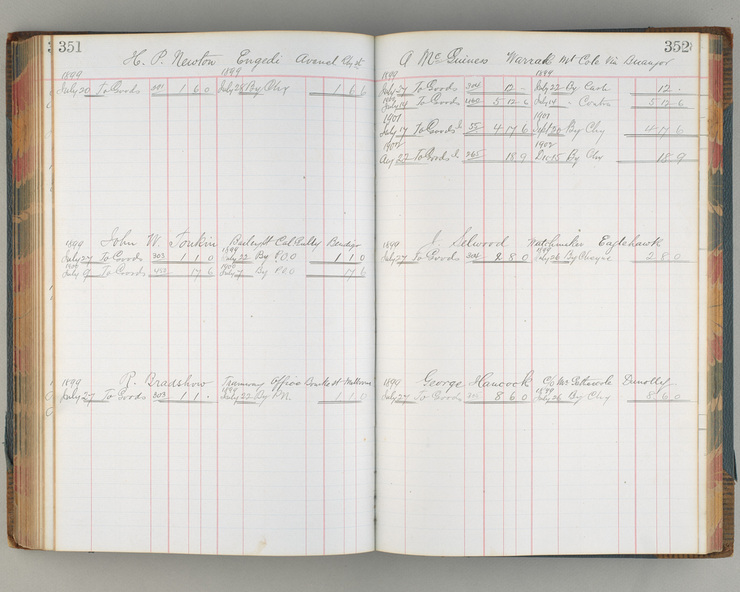 351
H. P. Newton Engedi Avenel
1899 1899
July 20 To Goods 1 6 0 July 28 By Chq 1 6 0
John W. Tonkin Bailey St Cal Gully Bendigo
1899 1899
July 27 To Goods 303 1 1 0 July 22 By P.O.O 1 1 0
July 9 To Goods 17 6 July 7 By P.O.O 17 6
R. Bradshow Tramway Office
1899 1899
July 27 To Goods 303 1 1 . July 22 By P.N. 1 1 0
352
A McGuines Warrak Mt Cole Via Buangor
1899 1899
July 27 To Goods 304 12 - July 22 By Cash 12 -
July 14 To Goods 5 12 6 July 14 - Contra 5 12 6
1901 1901
July 17 To Goods 55 4 17 6 Sept 20 By Chq 4 17 6
1902 1902
Aug 22 To Goods 265 18 9 Dec 15 By Chq 18 9
J. Selwood Watchmaker Eaglehawk
1899 1899
July 27 To Goods 304 2 8 0 July 26 By Cheque 2 8 0
George Hancock C/o Mr Dunolly
1899 1899
July 27 To Goods 8 6 0 July 26 By Chq 8 6 0